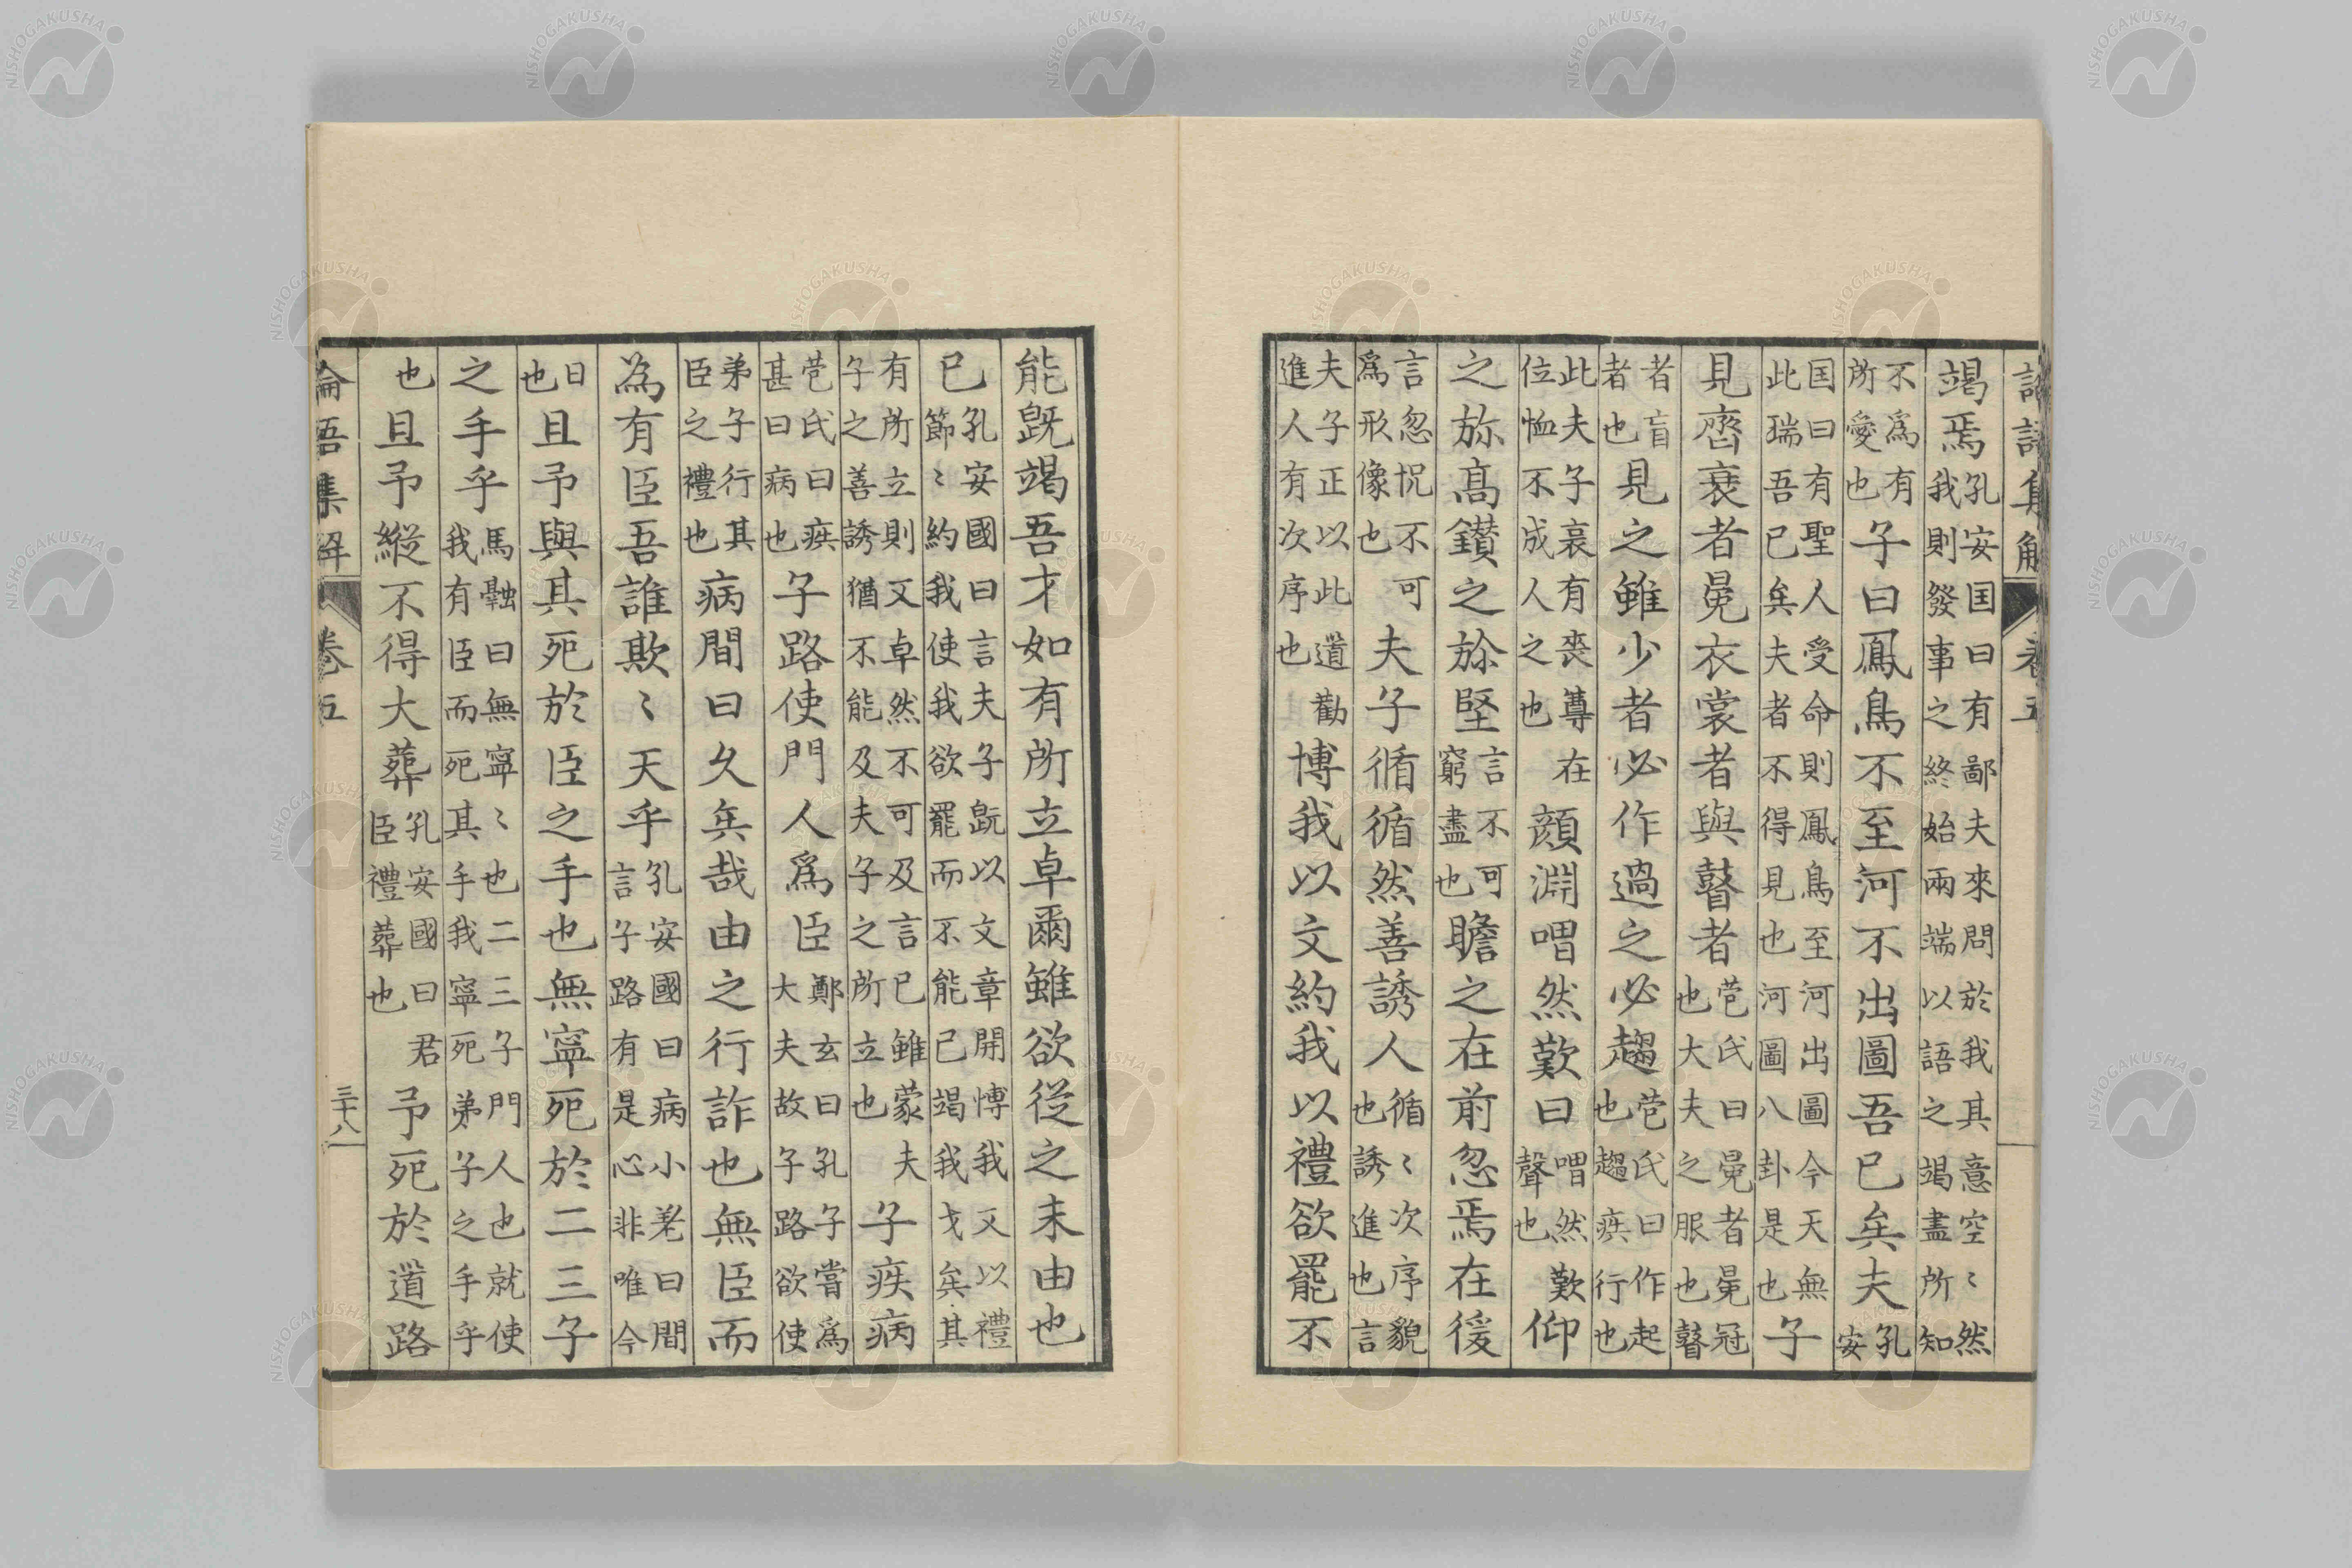 論語集解　卷五
竭焉孔安囯曰有鄙夫來問於我其意空〻然我則發事之終始兩端以語之竭盡所知
不爲有所愛也子曰鳳鳥不至河不出圖吾已矣夫孔安
囯曰有聖人受命則鳳鳥至河出圖今天無此瑞吾已矣夫者不得見也河圖八卦是也子
見齊衰者冕衣裳者與瞽者苞氏曰冕者冕冠也大夫之服也瞽
者盲者也見之雖少者必作過之必趨苞氏曰作起也趨疾行也
此夫子哀有喪尊在位恤不成人之也顔淵喟然歎曰喟然歎聲也仰
之弥髙鑽之弥堅言不可窮盡也瞻之在前忽焉在後
言忽怳不可爲形像也夫子循循然善誘人循〻次序貌也誘進也言
夫子正以此道勸進人有次序也博我以文約我以禮欲罷不
能旣竭吾才如有所立卓爾雖欲從之末由也
已孔安國曰言夫子旣以文章開愽我又以禮節〻約我使我欲罷而不能已竭我才矣其
有所立則又卓然不可及言已雖蒙夫子之善誘猶不能及夫子之所立也子疾病
苞氏曰疾甚曰病也子路使門人爲臣鄭玄曰孔子嘗爲大夫故子路欲使
弟子行其臣之禮也病間曰久矣哉由之行詐也無臣而
為有臣吾誰欺〻天乎孔安國曰病小差曰間言子路有是心非唯今
曰也且予與其死於臣之手也無寧死於二三子
之手乎馬融曰無寧〻也二三子門人也就使我有臣而死其手我寧死弟子之手乎
也且予縱不得大葬孔安國曰君臣禮葬也予死於道路
論語集解　卷五　三十八